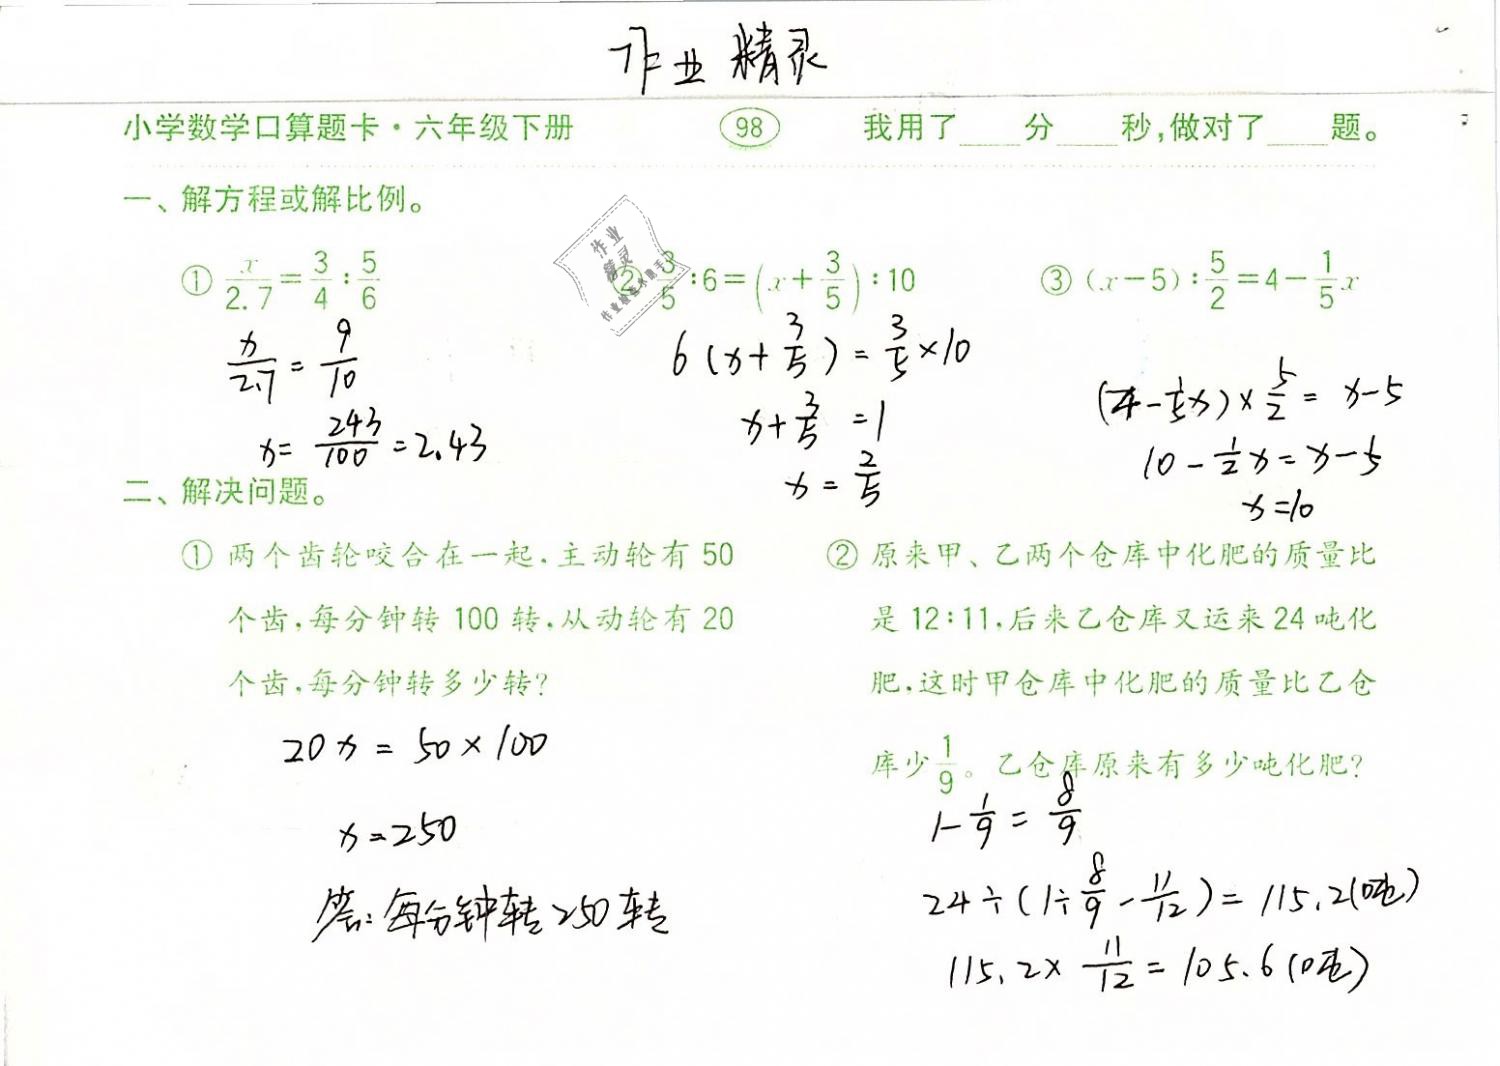 作业精灵
小学数学口算题卡·六年级下册 98 我用了____分____秒,做对了____题。
一、解方程或解比例。
① x/2.7=3/4:5/6 ② 3/5:6=(x+3/5):10 ③ (x-5):5/2=4-1/5x
x/2.7=9/10
x=243/100=2.43
6(x+3/5)=3/5×10
x+3/5=1
x=2/5
(4-1/5x)×5/2=x-5
10-1/2x=x-5
x=10
作业
精灵
二、解决问题。
① 两个齿轮咬合在一起,主动轮有50
个齿,每分钟转100转,从动轮有20
个齿,每分钟转多少转?
20x=50×100
x=250
答:每分钟转250转
② 原来甲、乙两个仓库中化肥的质量比
是12:11,后来乙仓库又运来24吨化
肥,这时甲仓库中化肥的质量比乙仓
库少1/9。乙仓库原来有多少吨化肥?
1-1/9=8/9
24÷(1÷8/9-11/12)=115.2(吨)
115.2×11/12=105.6(吨)